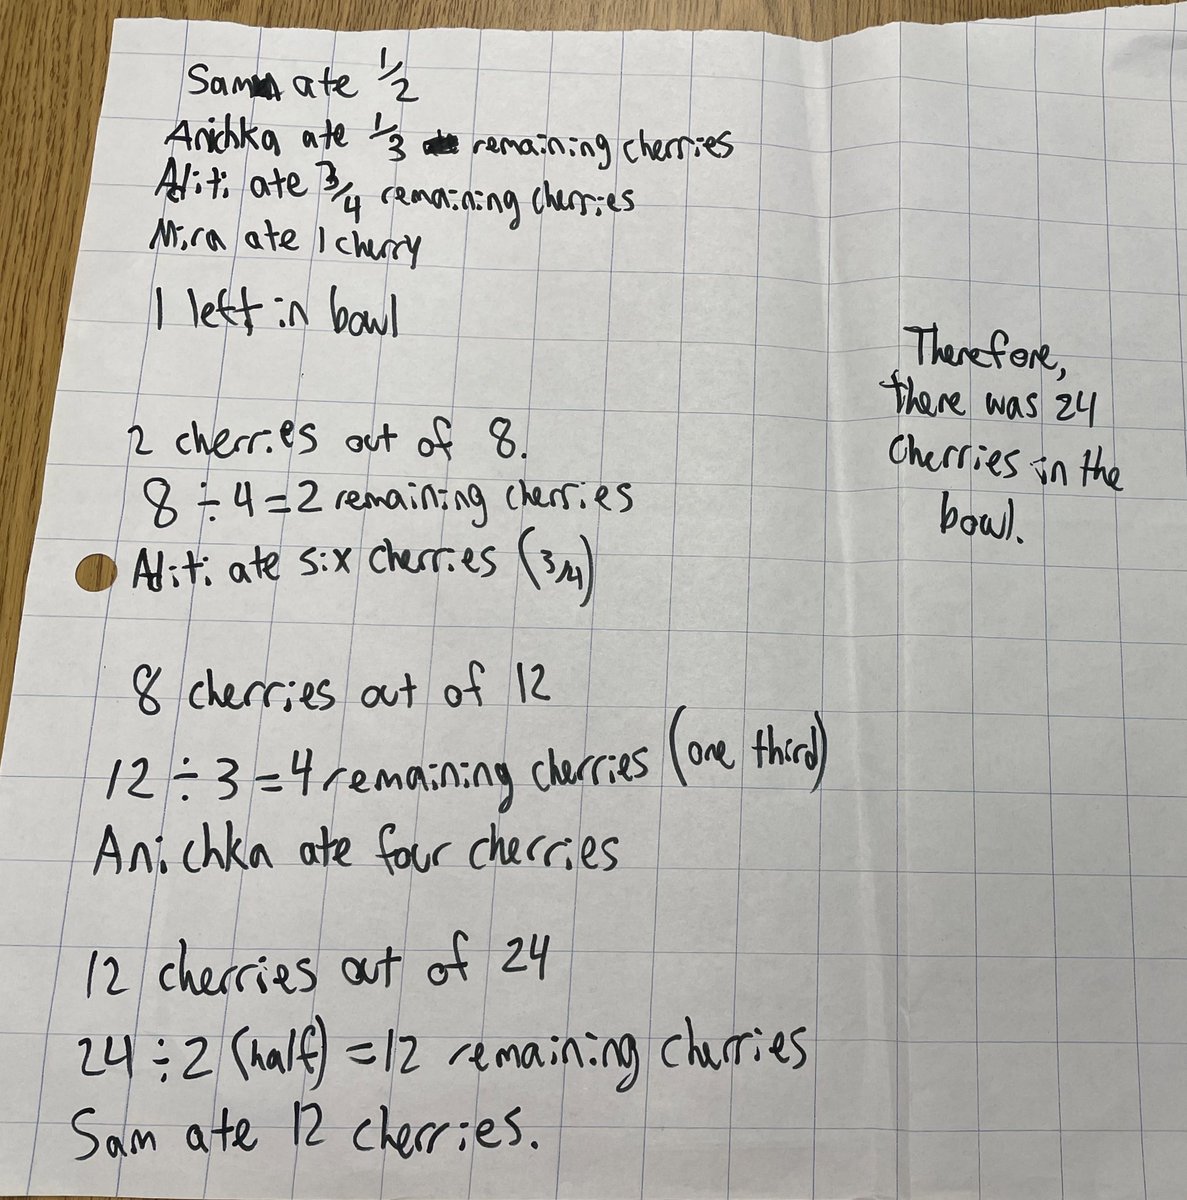 Sam ate 1/2
Anichka ate 1/3 remaining cherries
Aditi ate 3/4 remaining cherries
Mira ate 1 cherry
1 left in bowl
2 cherries out of 8.
8 ÷ 4 = 2 remaining cherries
Aditi ate six cherries (3/4)
8 cherries out of 12
12 ÷ 3 = 4 remaining cherries (one third)
Anichka ate four cherries
12 cherries out of 24
24 ÷ 2 (half) = 12 remaining cherries
Sam ate 12 cherries.
Therefore,
there was 24
cherries in the
bowl.